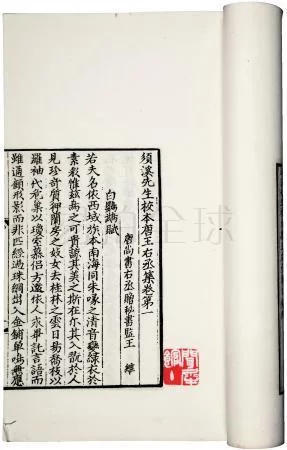 須溪先生校本唐王右丞集卷第一
唐尚書右丞贈秘書監王 維
白鸚鵡賦
若夫名依西域族本南海同朱喙之清音變綠衣於
素彩惟茲禽之可貴諒其美之斯在尔其入翫於人
見珍奇質狎蘭房之妖女去桂林之雲日易喬枝以
羅袖代危巢以瓊室慕侶方遠依人永畢託言語而
雖通顧形影而非匹經過珠網出入金鋪單鳴無應
全球